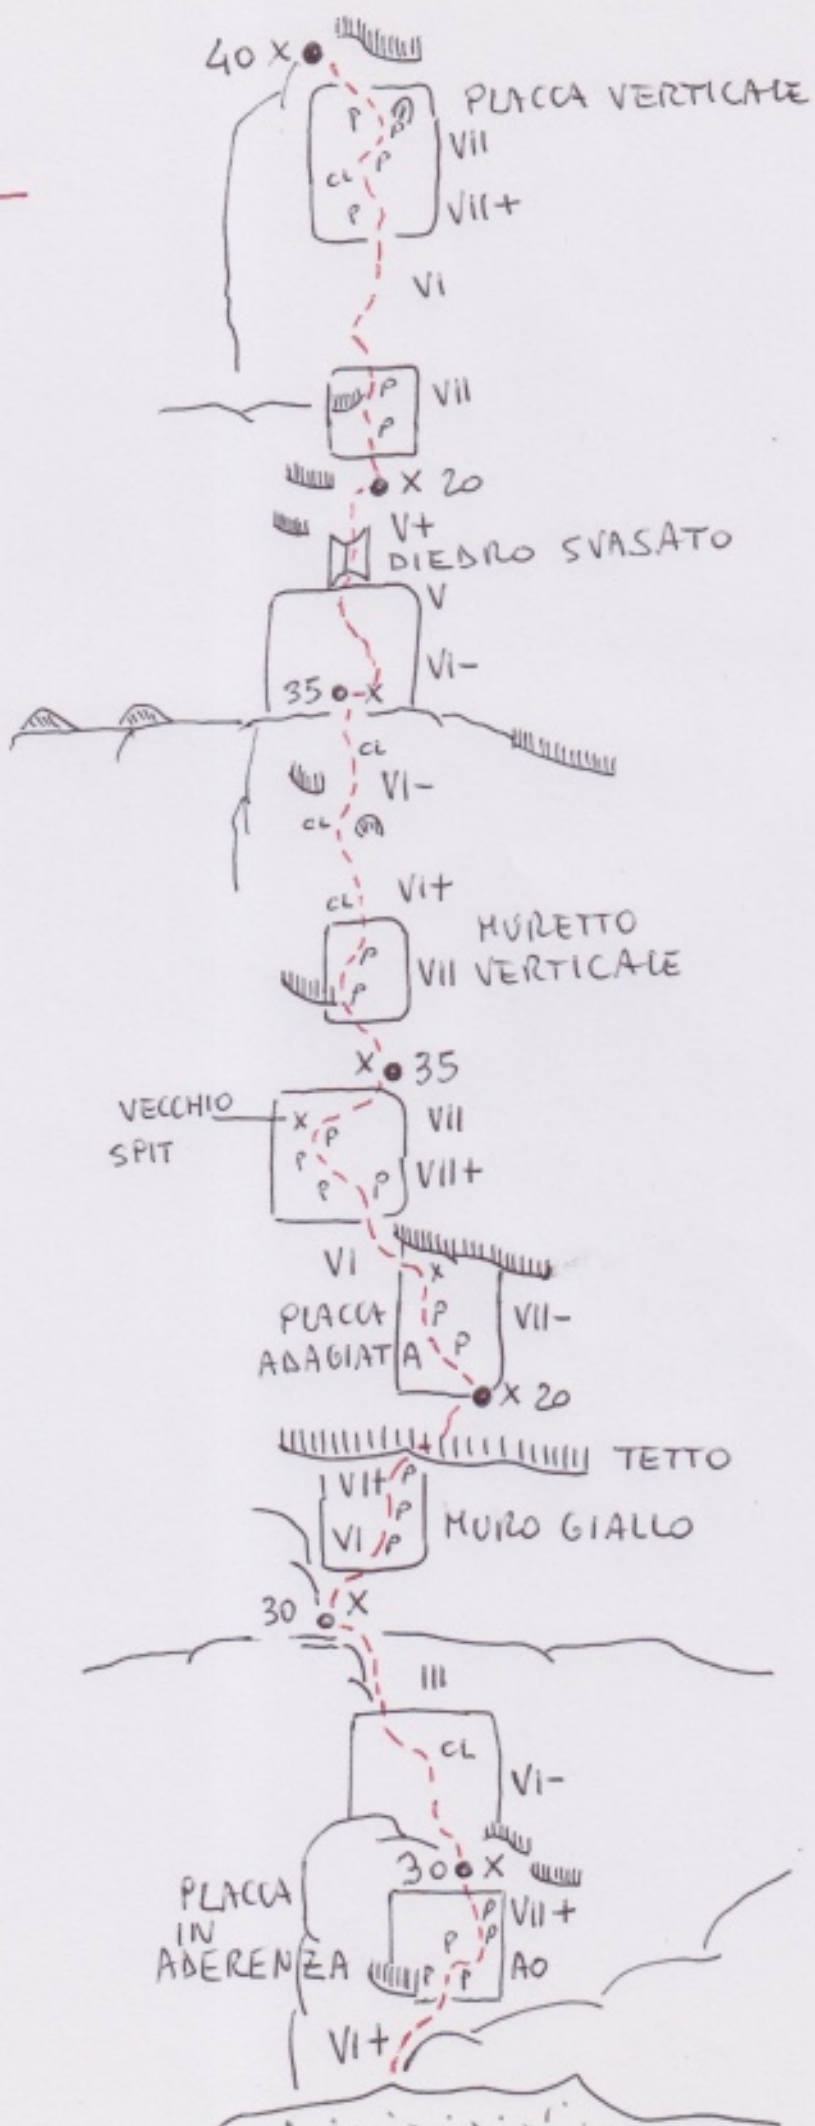 40 X
PLACCA VERTICALE
P
P
VII
CL
P
P
VII+
VI
P
VII
P
X 20
V+
DIEDRO SVASATO
V
VI-
35
X
CL
VI-
CL
CL
VI+
MURETTO
P
VII VERTICALE
P
X
35
VECCHIO
SPIT
X
P
VII
P
P
P
VII+
VI
X
PLACCA
ADAGIATA
P
P
VII-
X 20
TETTO
VI+
P
P
MURO GIALLO
VI
P
30
X
III
CL
VI-
30
X
PLACCA
IN
ADERENZA
P
VII+
P
P
P
P
A0
VI+